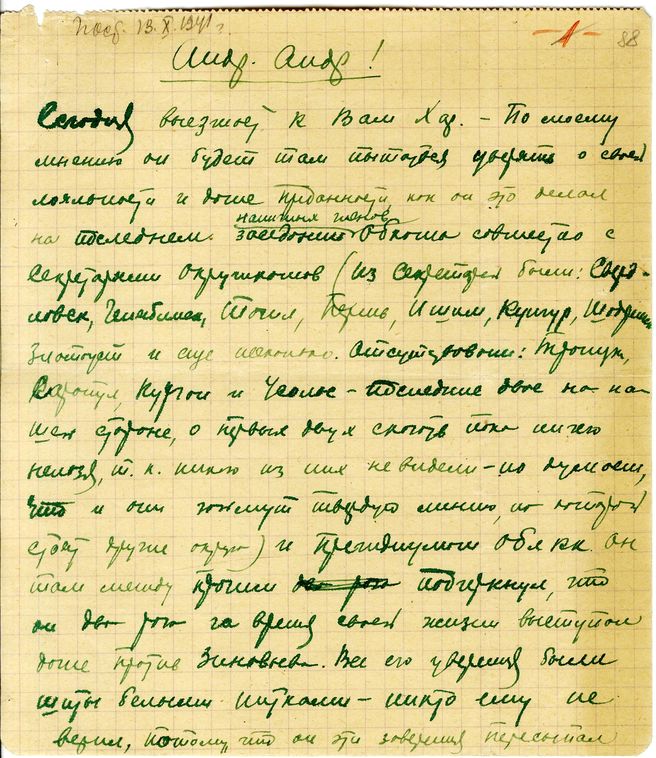 Пост. 13.X.1941 г.
-1-
88
Андр. Андр!
Сегодня выезжает к Вам Хар. – По моему
мнению он будет там пытаться уверять о своей
лояльности и даже преданности, как он это делал
наличия членов
на последнем заседании Обкома совместно с
секретарями окружкомов (из секретарей были: Сверд-
ловск, Челябинск, Тагил, Пермь, Ишим, Кунгур, Шадринск
Златоуст и еще несколько. Отсутствовали: Троицк,
Сарапул, Курган и Усолье – последние двое на на-
шей стороне, о первых двух сказать пока ничего
нельзя, т. к. никого из них не видели – но думаем,
что и они займут твердую линию, на которой
стоят другие округа) и президиумом Обл КК. он
там между прочим два раза подчеркнул, что
он два раза за время своей жизни выступал
даже против Зиновьева. Все его уверения были
шиты белыми нитками – никто ему не
верил, потому, что он эти заверения пересыпал